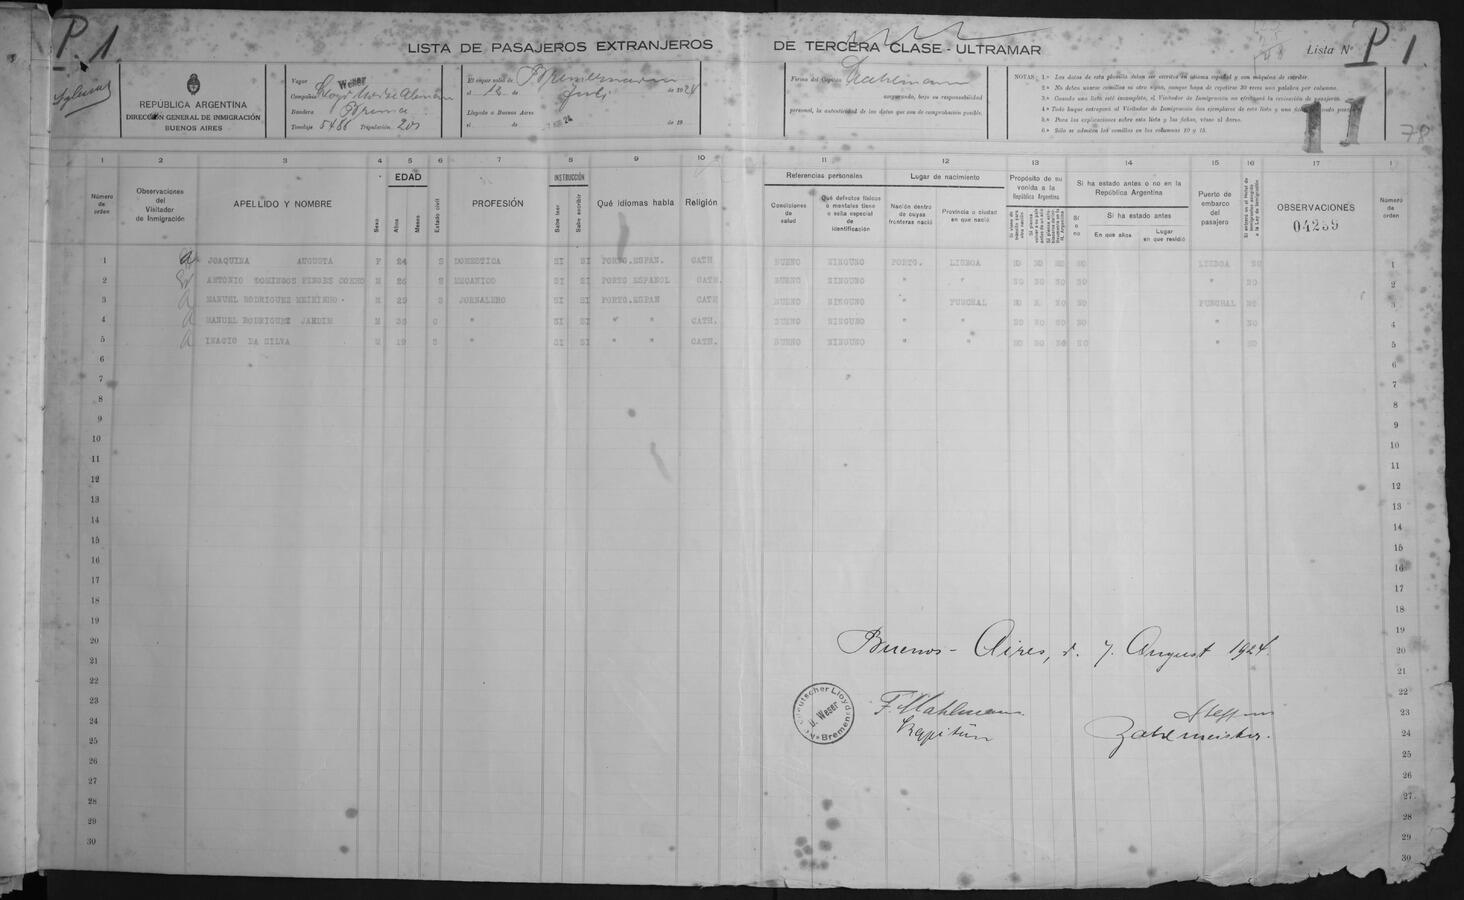 P. 1.
LISTA DE PASAJEROS EXTRANJEROS DE TERCERA CLASE - ULTRAMAR
Lista Nº P 1.
Iglesias
REPÚBLICA ARGENTINA
DIRECCIÓN GENERAL DE INMIGRACIÓN
BUENOS AIRES
Vapor Weser
Compañía Lloyd Norte Aleman
Bandera Bremen
Tonelaje 5486 Tripulación 201
El vapor salió de Bremen
el 12 de Juli de 1924
Llegado a Buenos Aires
el de de 19
Firma del Capitán
asegurando, bajo su responsabilidad
personal, la autenticidad de los datos que son de comprobación posible.
NOTAS 1.ª Los datos de esta planilla deben ser escritos en idioma español y con máquina de escribir.
2.ª No deben usarse comillas ni otro signo, aunque haya de repetirse 30 veces una palabra por columna.
3.ª Cuando una lista esté incompleta, el Visitador de Inmigración no efectuará la revisación de pasajeros.
4.ª Todo buque entregará al Visitador de Inmigración dos ejemplares de esta lista y una ficha
5.ª Para las explicaciones sobre esta lista y las fichas, véase al dorso.
6.ª Sólo se admiten las comillas en las columnas 10 y 15.
11
78
1 2 3 4 5 6 7 8 9 10 11 12 13 14 15 16 17 1
Número de orden
Observaciones del Visitador de Inmigración
APELLIDO Y NOMBRE
Sexo
EDAD
Años
Meses
Estado civil
PROFESIÓN
INSTRUCCIÓN
Sabe leer
Sabe escribir
Qué idiomas habla
Religión
Referencias personales
Condiciones de salud
Qué defectos físicos o mentales tiene o seña especial de identificación
Lugar de nacimiento
Nación dentro de cuyas fronteras nació
Provincia o ciudad en que nació
Propósito de su venida a la República Argentina
Si ha estado antes o no en la República Argentina
Sí o no
Si ha estado antes
En que años
Lugar en que residió
Puerto de embarco del pasajero
OBSERVACIONES
04259
Número de orden
1 a JOAQUINA AUGUSTA F 24 S DOMESTICA SI SI PORTG.ESPAN. CATH BUENO NINGUNO PORTG. LISBOA NO NO NO NO LISBOA NO 1
2 ANTONIO DOMINGOS M 26 S MECANICO SI SI PORTG ESPANOL CATH BUENO NINGUNO " " NO NO NO NO " NO 2
3 a MANUEL RODRIGUEZ M 29 S JORNALERO SI SI PORTG.ESPAN CATH BUENO NINGUNO " FUNCHAL NO NO NO NO FUNCHAL NO 3
4 a MANUEL RODRIGUEZ JARDIM M C " SI SI " " CATH. BUENO NINGUNO " " NO NO NO NO " NO 4
5 a INACIO DA SILVA M 19 S " SI SI " " CATH. BUENO NINGUNO " " NO NO NO NO " NO 5
6 6
7 7
8 8
9 9
10 10
11 11
12 12
13 13
14 14
15 15
16 16
17 17
18 18
19 19
20 20
21 21
22 22
23 23
24 24
25 25
26 26
27 27
28 28
29 29
30 30
Buenos-Aires, d. 7. August 1924.
Norddeutscher Lloyd
D. Weser
Bremen
F. Mahlmann
Kapitän
Steffens
Zahlmeister.